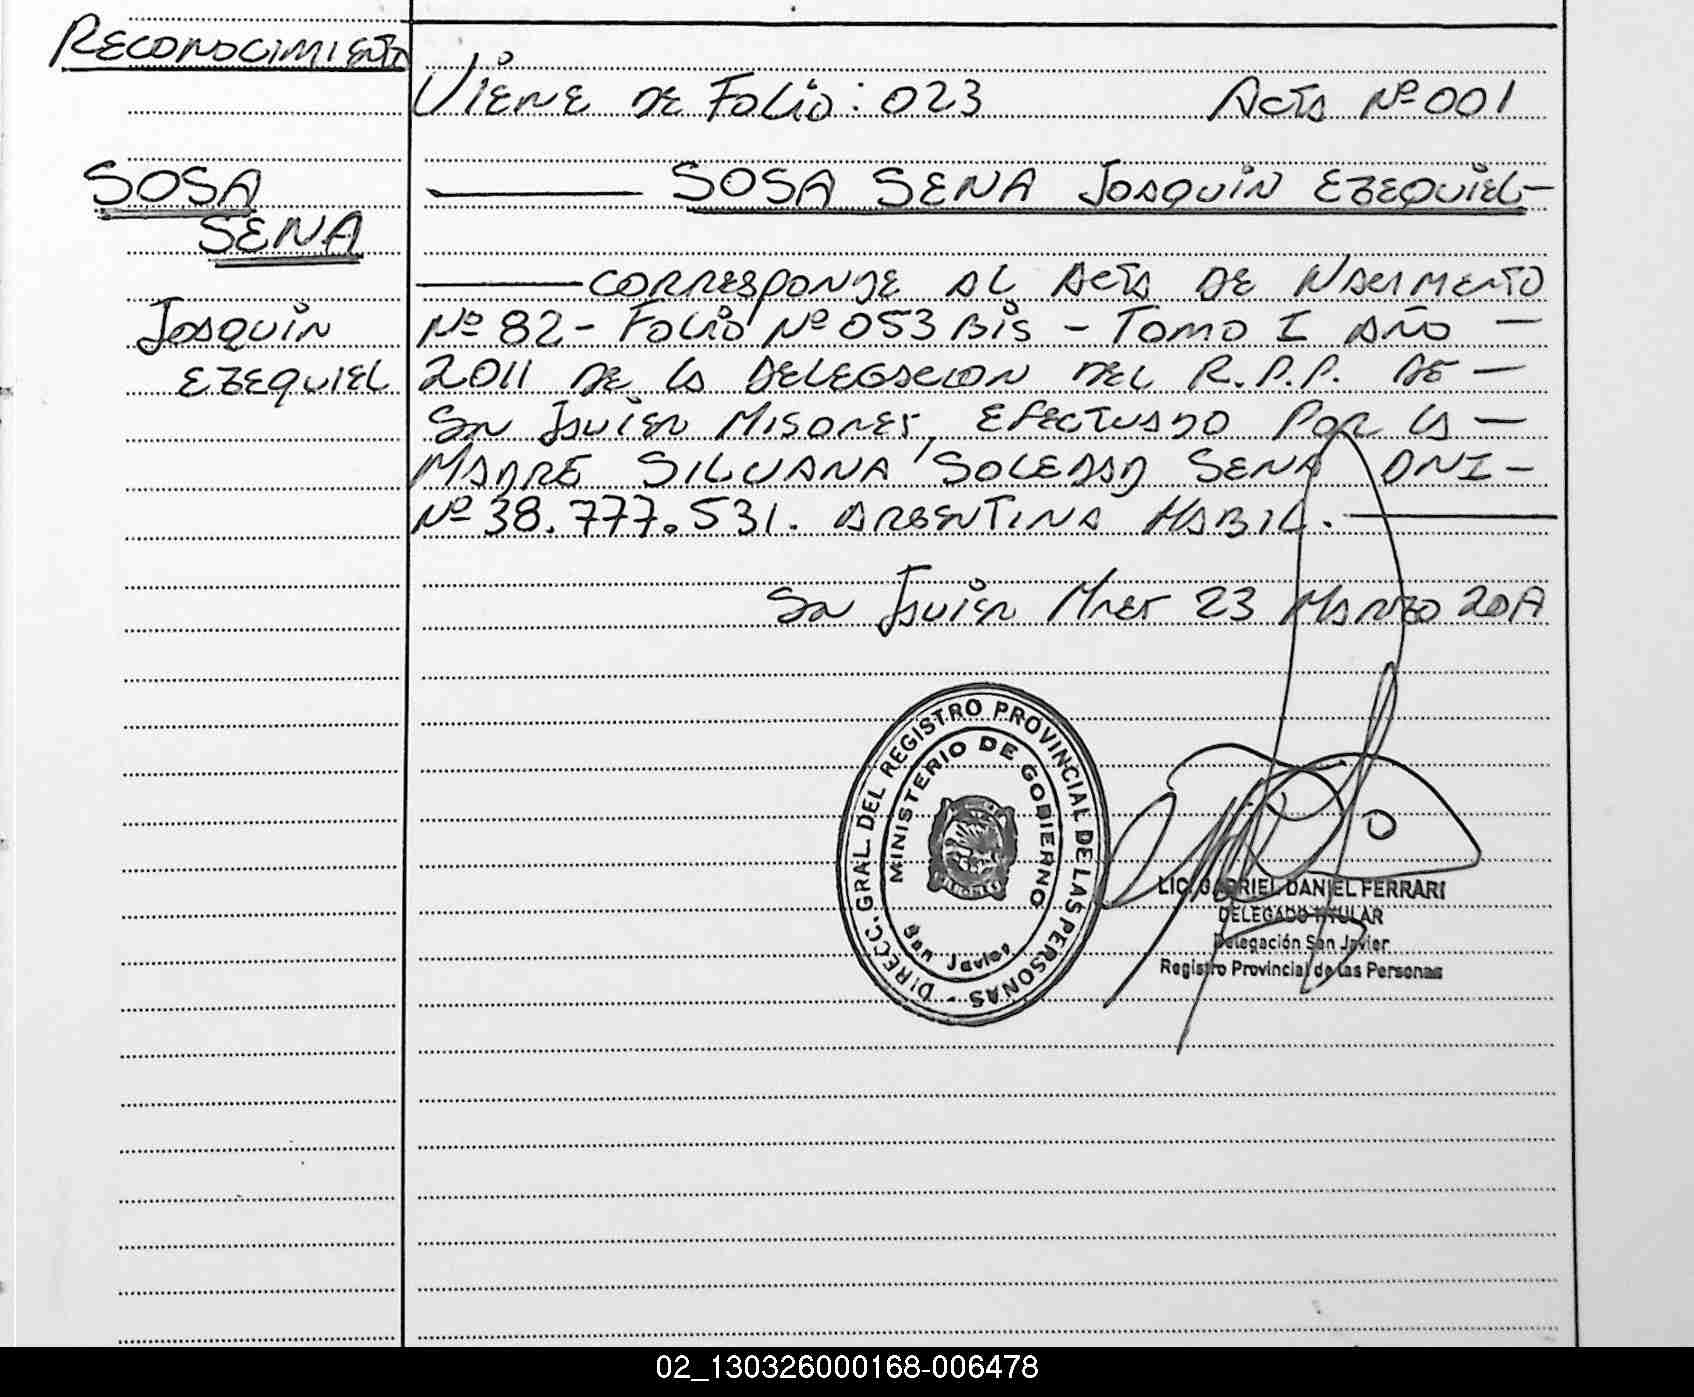 RECONOCIMIENTO
VIENE DE FOLIO: 023 ACTA Nº 001
SOSA
SENA
JOAQUIN
EZEQUIEL
SOSA SENA JOAQUIN EZEQUIEL-
CORRESPONDE AL ACTA DE NACIMENTO
Nº 82 - FOLIO Nº 053 BIS - TOMO I AÑO -
2011 DE LA DELEGACION DEL R.P.P. DE -
SAN JAVIER MISONES, EFECTUADO POR LA -
MADRE SILVANA SOLEDAD SENA DNI -
Nº 38.777.531. ARGENTINA HABIL.
SAN JAVIER MNES 23 MARZO
DIRECC. GRAL. DEL REGISTRO PROVINCIAL DE LAS PERSONAS -
MINISTERIO DE GOBIERNO
San Javier
MISIONES
LIC. GABRIEL DANIEL FERRARI
DELEGADO TITULAR
Delegación San Javier
Registro Provincial de las Personas
02_130326000168-006478